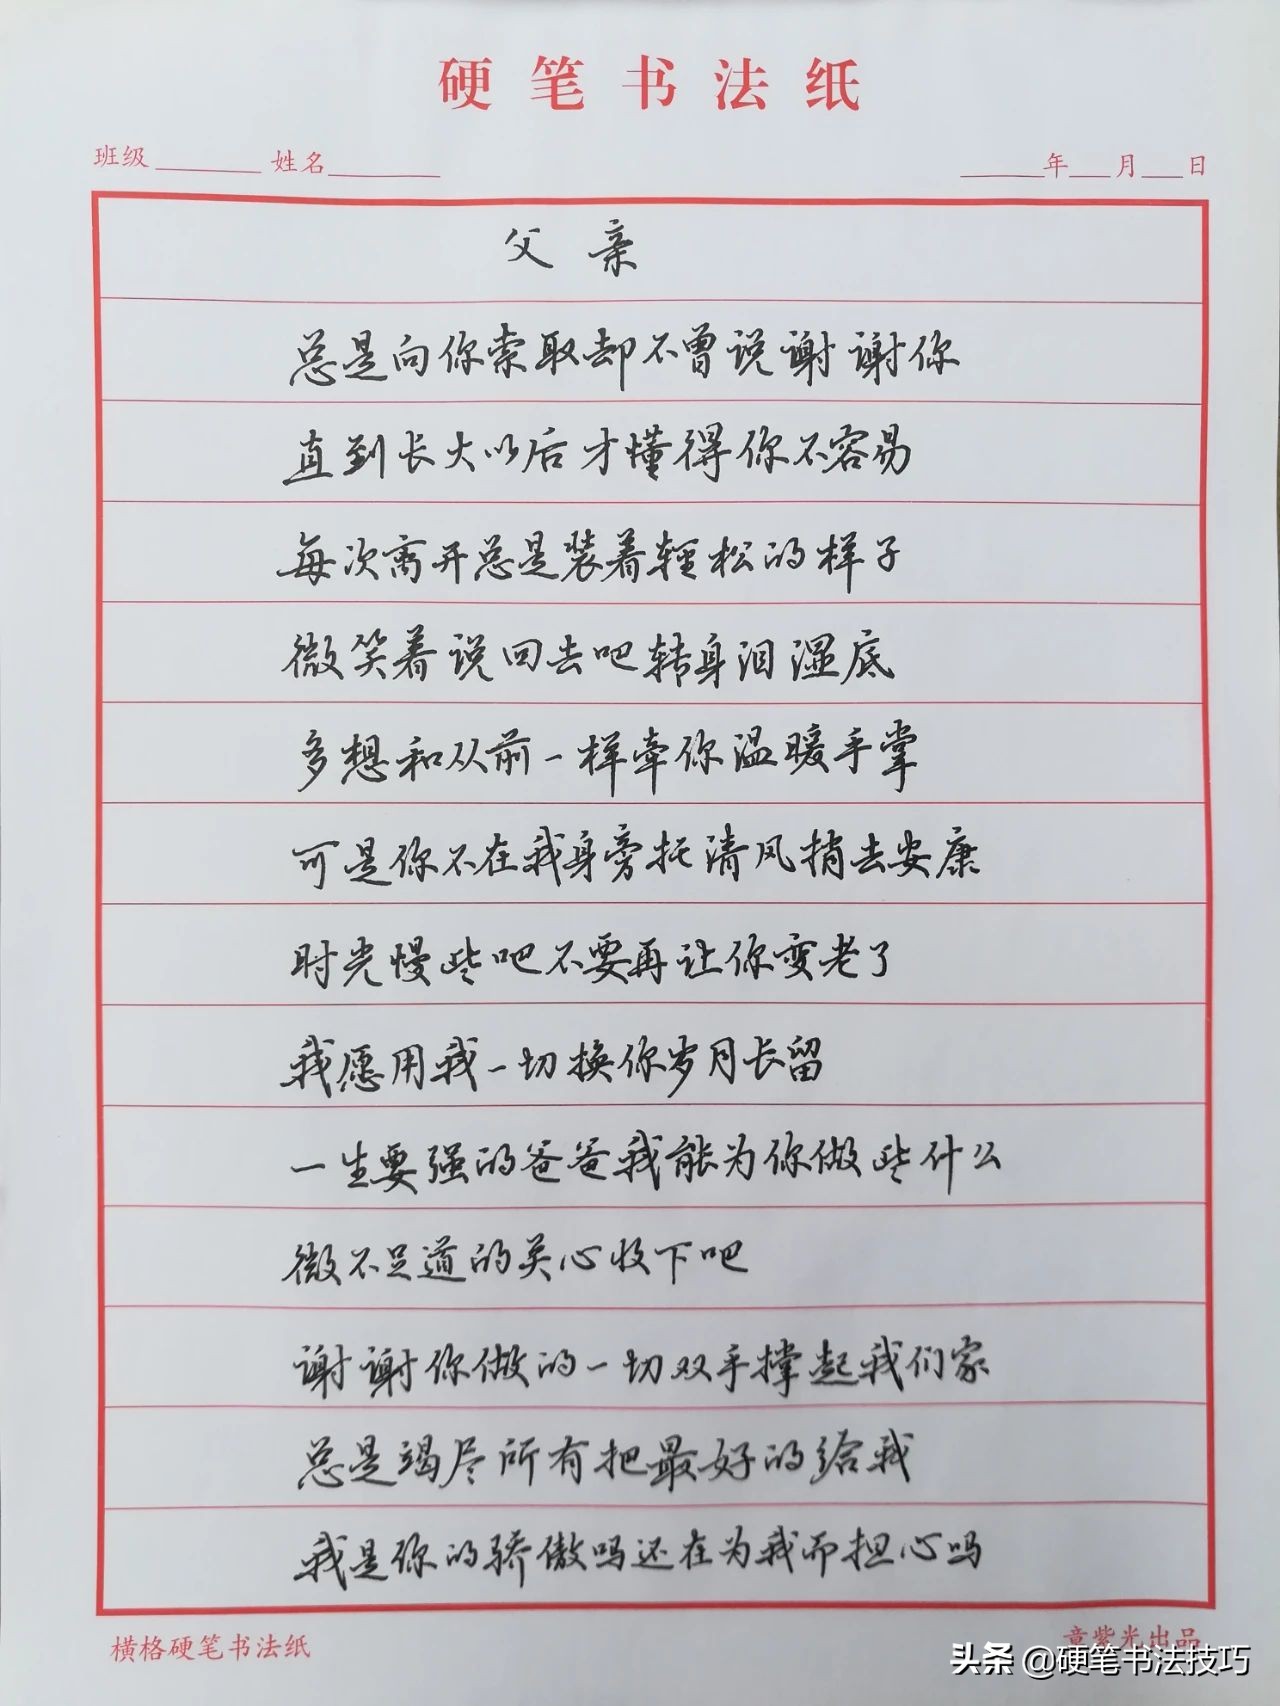 硬笔书法纸
班级 姓名 年 月 日
父亲
总是向你索取却不曾说谢谢你
直到长大以后才懂得你不容易
每次离开总是装着轻松的样子
微笑着说回去吧转身泪湿底
多想和从前一样牵你温暖手掌
可是你不在我身旁托清风捎去安康
时光慢些吧不要再让你变老了
我愿用我一切换你岁月长留
一生要强的爸爸我能为你做些什么
微不足道的关心收下吧
谢谢你做的一切双手撑起我们家
总是竭尽所有把最好的给我
我是你的骄傲吗还在为我而担心吗
横格硬笔书法纸
章紫光出品
头条 @硬笔书法技巧